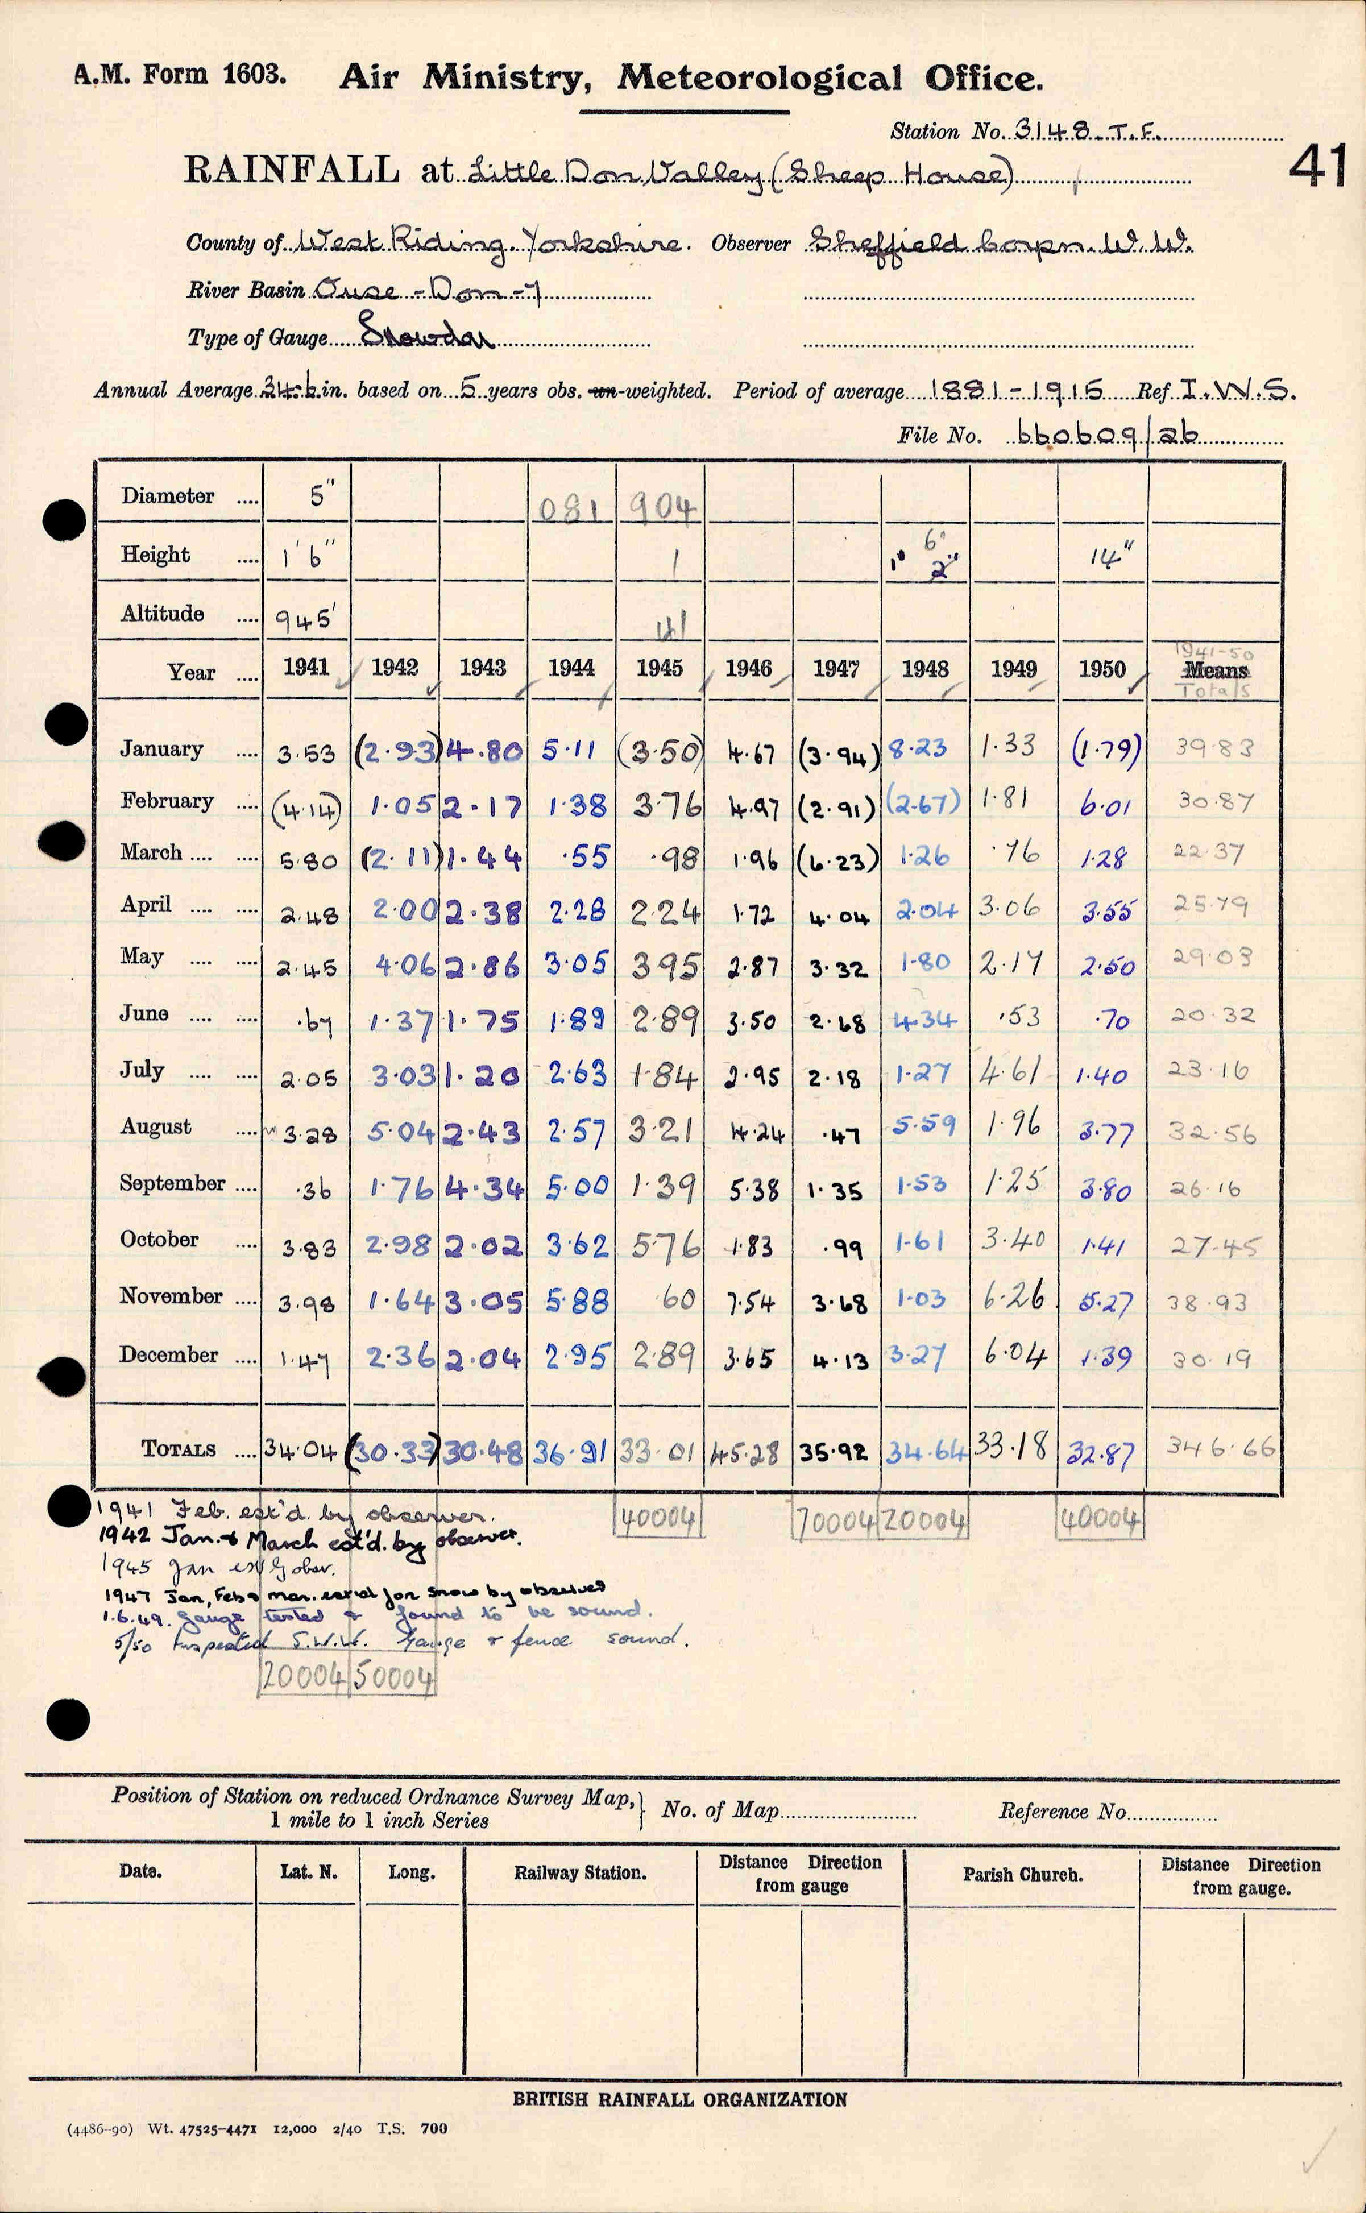 A.M. Form 1603. Air Ministry, Meteorological Office.
Station No. 3148. T.F.
41
RAINFALL at Little Don Valley (Sheep House)
County of West Riding. Yorkshire. Observer Sheffield Corpn. W.W.
River Basin Ouse - Don - 7
Type of Gauge Snowdon
Annual Average 34.6 in. based on 5 years obs. un-weighted. Period of average 1881-1915 Ref I.W.S.
File No. 660609/26
Diameter .... 5" 081 904
Height .... 1' 6" 1 1' 6" 2" 14"
Altitude .... 945' 41
Year .... 1941 1942 1943 1944 1945 1946 1947 1948 1949 1950 1941-50 Means Totals
January .... 3.53 (2.93) 4.80 5.11 (3.50) 4.67 (3.94) 8.23 1.33 (1.79) 39.83
February .... (4.14) 1.05 2.17 1.38 3.76 4.97 (2.91) (2.67) 1.81 6.01 30.87
March .... .... 5.80 (2.11) 1.44 .55 .98 1.96 (6.23) 1.26 .76 1.28 22.37
April .... .... 2.48 2.00 2.38 2.28 2.24 1.72 4.04 2.04 3.06 3.55 25.79
May .... .... 2.45 4.06 2.86 3.05 3.95 2.87 3.32 1.80 2.17 2.50 29.03
June .... .... .67 1.37 1.75 1.89 2.89 3.50 2.68 4.34 .53 .70 20.32
July .... .... 2.05 3.03 1.20 2.63 1.84 2.95 2.18 1.27 4.61 1.40 23.16
August .... 3.28 5.04 2.43 2.57 3.21 4.24 .47 5.59 1.96 3.77 32.56
September .... .36 1.76 4.34 5.00 1.39 5.38 1.35 1.53 1.25 3.80 26.16
October .... 3.83 2.98 2.02 3.62 5.76 1.83 .99 1.61 3.40 1.41 27.45
November .... 3.98 1.64 3.05 5.88 .60 7.54 3.68 1.03 6.26 5.27 38.93
December .... 1.47 2.36 2.04 2.95 2.89 3.65 4.13 3.27 6.04 1.39 30.19
TOTALS .... 34.04 (30.33) 30.48 36.91 33.01 45.28 35.92 34.64 33.18 32.87 346.66
40004 70004 20004 40004
1941 Feb. est'd. by observer.
1942 Jan. & March est'd. by observer.
1945 Jan est by obser.
1947 Jan, Feb & Mar. est'd for snow by observer
1.6.49. Gauge tested & found to be sound.
5/50 Inspected S.W.W. Gauge & fence sound.
20004 50004
Position of Station on reduced Ordnance Survey Map, 1 mile to 1 inch Series } No. of Map Reference No.
Date. Lat. N. Long. Railway Station. Distance Direction from gauge Parish Church. Distance Direction from gauge.
BRITISH RAINFALL ORGANIZATION
(4486-90) Wt. 47525-4471 12,000 2/40 T.S. 700